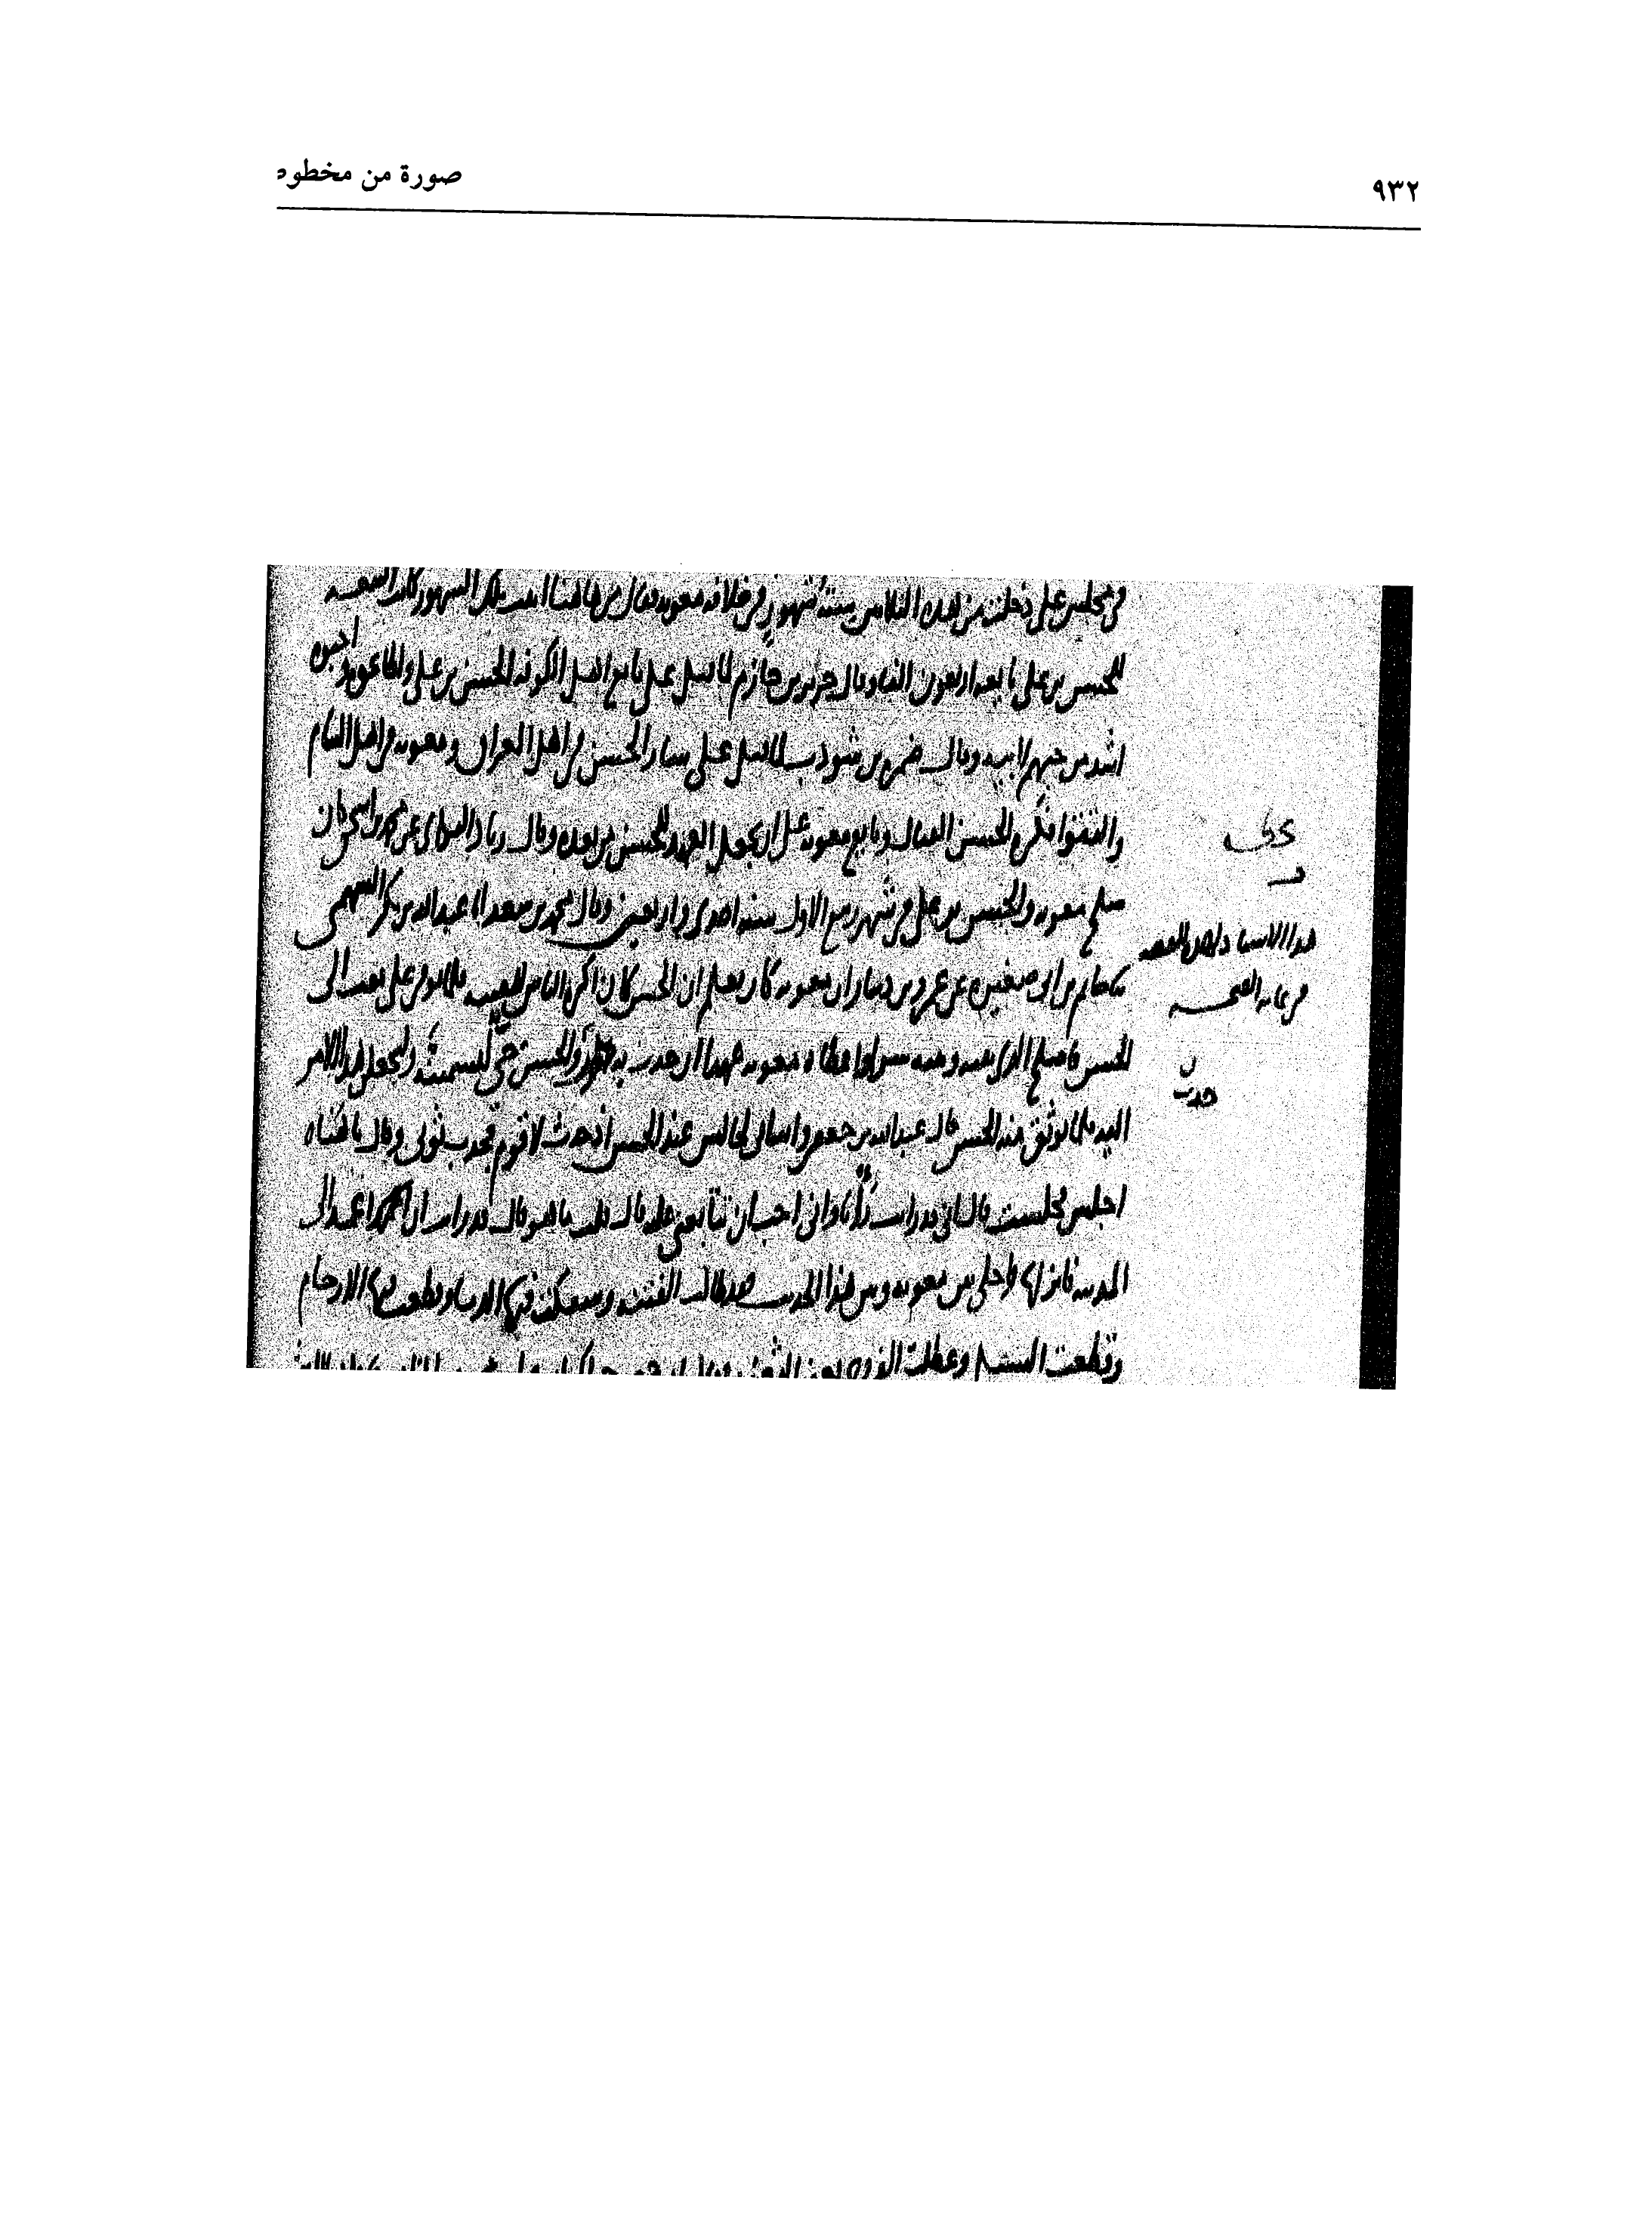 ٩٣٢
صورة من مخطوط
في مجلس علي من هذه الثلاثين ستة شهور في خلافة معوية
الحسن بن علي بايعه اربعون الفا وقال جرير بن حازم لما قتل علي بايع اهل الكوفة الحسن بن علي واطاعوه واحبوه
اشد من حبهم لابيه وقال ضمرة بن شوذب لما قتل علي سار الحسن في اهل العراق ومعوية في اهل الشام
والتقوا فكره الحسن القتال وبايع معوية على ان يجعل العهد للحسن من بعده وقال زياد البكائي عن محمد بن اسحق كان
صلح معوية والحسن بن علي في شهر ربيع الاول سنة احدى واربعين وقال محمد بن سعد انا عبد الله بن بكر السهمي
حاتم بن ابي صغيرة عن عمرو بن دينار ان معوية كان يعلم ان الحسن كان اكره الناس للفتنة فلما توفي علي بعث الى
الحسن فاصلح الذي بينه وبينه سرا واعطاه معوية عهدا ان حدث به حدث والحسن حي ليسمينه وليجعلن هذا الامر
اليه فلما توثق منه الحسن قال عبد الله بن جعفر والله اني لجالس عند الحسن اذ اخذت لاقوم فجذب بثوبي وقال يا هناه
اجلس فجلست قال اني قد رايت رايا واني احب ان تتابعني عليه قال قلت ما هو قال قد رايت ان اعمد الى
المدينة فانزلها واخلي بين معوية وبين هذا الحديث فقد طالت الفتنة وسفكت فيها الدماء وقطعت فيها الارحام
وقطعت السبل وعطلت الفروج يعني الثغور
هذا الاسناد لهذه القصة
في غاية الصحة
حدث